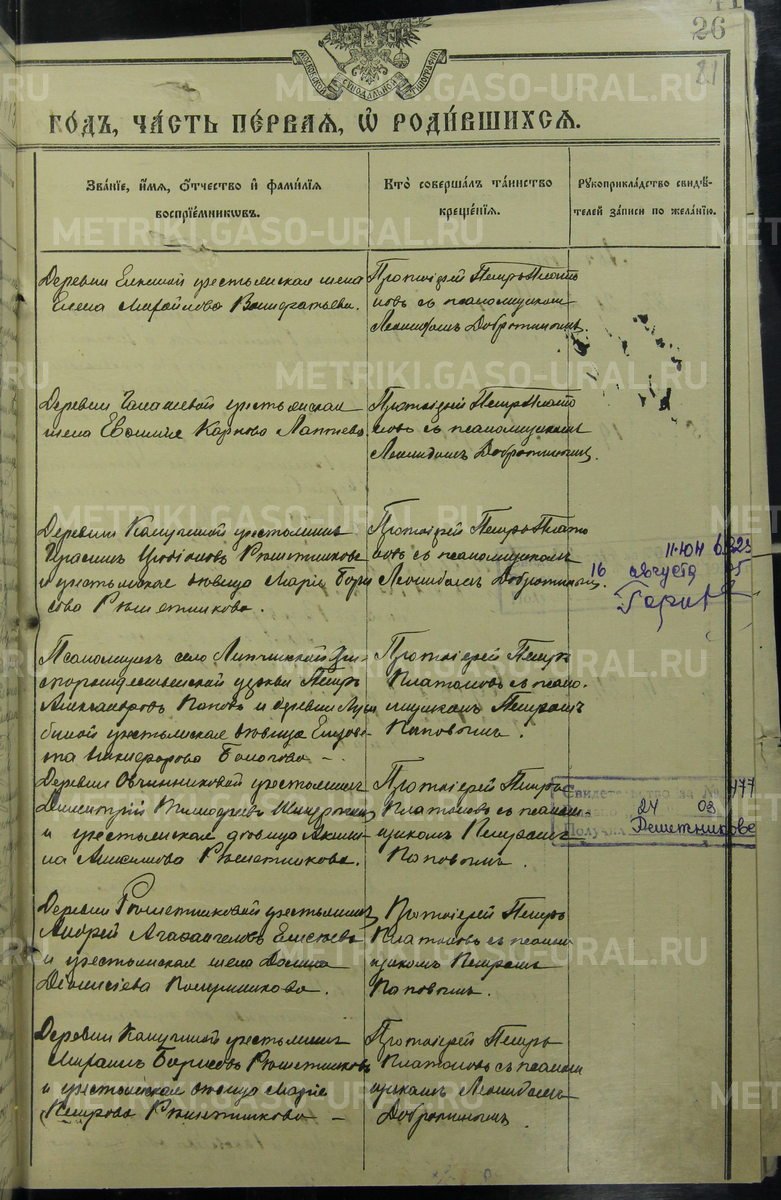 26
21
МОСКОВСКОЙ СѴНОДАЛЬНОЙ ТИПОГРАФІИ
METRIKI.GASO-URAL.RU
го́дъ, ча́сть пе́рвая, ѡ҆ роди́вшихсѧ.
Зва́нїе, и҆́мѧ, ѻ҆́тчество и҆ фами́лїѧ
воспрїе́мникѡвъ.
Кто̀ соверша́лъ та́инство
креще́нїѧ.
Рꙋкоприкла́дство свидѣ́-
телей за́писи по жела́нїю.
Деревни крестьянская жена
Елена Михайлова
Протоіерей Петръ Плато
новъ съ псаломщикомъ
Леонидомъ Добротинымъ.
Деревни крестьянская
жена Евдокія Карпова Лаптева.
Протоіерей Петръ Плато
новъ съ псаломщикомъ
Леонидомъ Добротинымъ.
Деревни крестьянинъ
Герасимъ Решетниковъ
и крестьянская дѣвица Марія Бори
сова Решетникова.
Протоіерей Петръ Плато
новъ съ псаломщикомъ
Леонидомъ Добротинымъ.
16 августа
Псаломщикъ села Липчинской
церкви Петръ
Александровъ Поповъ и деревни
крестьянская дѣвица Елизаве
та Никифорова
Протоіерей Петръ
Платоновъ съ псало-
мщикомъ Петромъ
Поповымъ.
Деревни Овчинниковой крестьянинъ
Димитрій
и крестьянская дѣвица Акили
на Анисимова Решетникова.
Протоіерей Петръ
Платоновъ съ псалом
щикомъ Петромъ
Поповымъ.
Свидетельство за № 477
24 08
Получил Решетникове
Деревни Решетниковой крестьянинъ
Андрей Агафангеловъ Елисѣевъ
и крестьянская жена Домна
Діонисіева
Протоіерей Петръ
Платоновъ съ псалом
щикомъ Петромъ
Поповымъ.
Деревни крестьянинъ
Михаилъ Борисовъ Решетниковъ
и крестьянская дѣвица Марія
Петрова Решетникова
Протоіерей Петръ
Платоновъ съ псалом
щикомъ Леонидомъ
Добротинымъ.